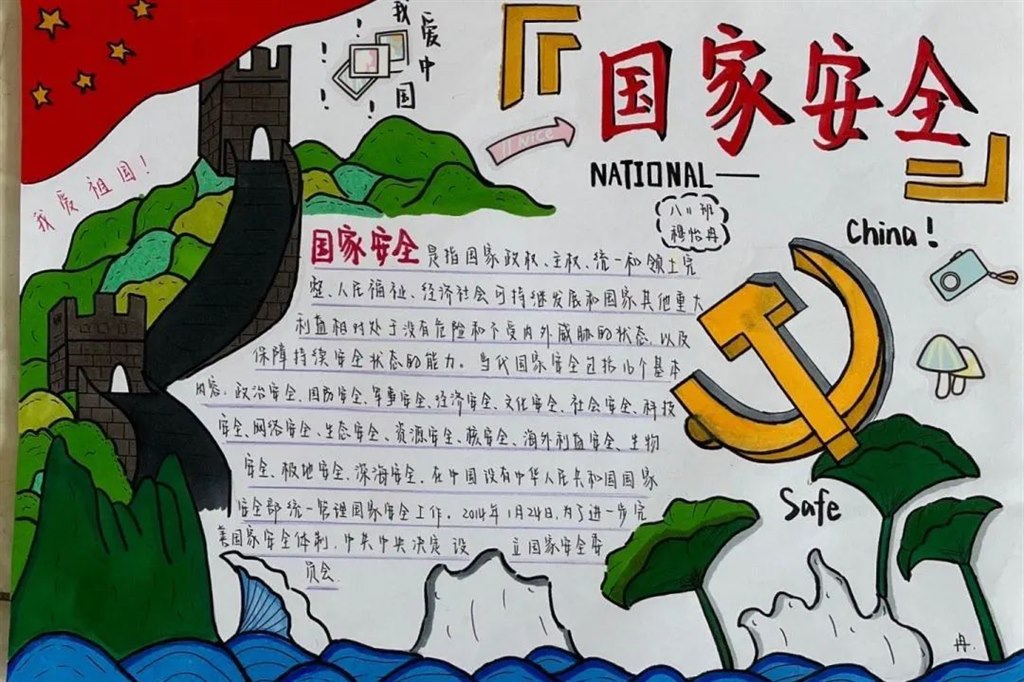 我爱中国
国家安全
NICE
NATIONAL—
我爱祖国!
八11班
穆怡冉
China!
国家安全是指国家政权、主权、统一和领土完
整、人民福祉、经济社会可持续发展和国家其他重大
利益相对处于没有危险和不受内外威胁的状态,以及
保障持续安全状态的能力。当代国家安全包括16个基本
内容:政治安全、国防安全、军事安全、经济安全、文化安全、社会安全、科技
安全、网络安全、生态安全、资源安全、核安全、海外利益安全、生物
安全、极地安全、深海安全、在中国设有中华人民共和国国家
安全部统一管理国家安全工作。2014年1月24日,为了进一步完
美国家安全体制,中共中央决定设 立国家安全委
员会.
Safe
冉.